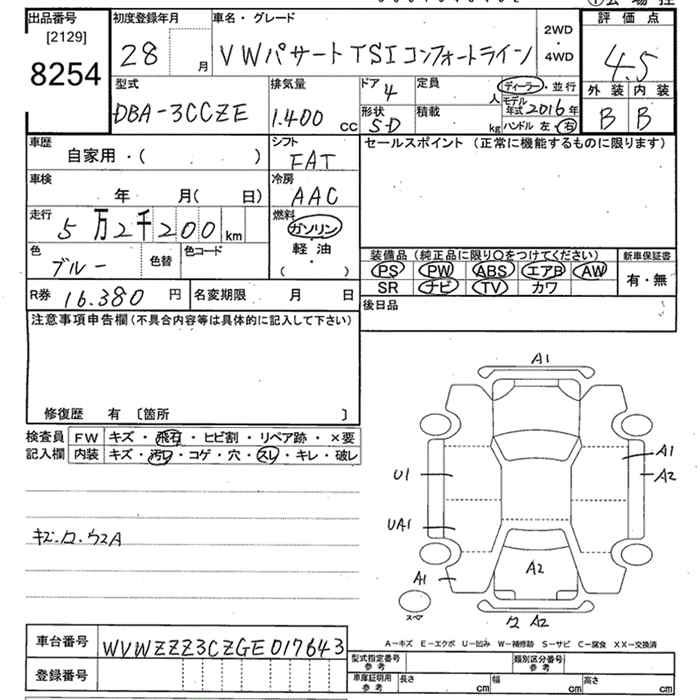 出品番号 初度登録年月 車名・グレード 2WD・4WD 評価点
[2129]
8254 28 月 VWパサート TSI コンフォートライン 4.5
型式 排気量 ドア 4 定員 人 ディーラー・並行 外装 内装
DBA-3CCZE 1.400 cc 形状 S-D 積載 kg モデル年式 2016年 B B
ハンドル 左・右
車歴 シフト セールスポイント (正常に機能するものに限ります)
自家用・( ) FAT
車検 冷房
年 月( 日) AAC
走行 燃料
5万2千200 km ガソリン
色 色替 色コード 軽油
ブルー ( )
装備品 (純正品に限り○をつけてください) 新車保証書
PS PW ABS エアB AW 有・無
SR ナビ TV カワ
R券 16.380 円 名変期限 月 日 後日品
注意事項申告欄 (不具合内容等は具体的に記入して下さい)
修復歴 有 〔箇所 〕
検査員 FW キズ・飛石・ヒビ割・リペア跡・×要
記入欄 内装 キズ・汚レ・コゲ・穴・スレ・キレ・破レ
A1
A1
U1 A2
UA1
キズ.ロ.ウスA
A1 A2
スペア
ワ A2
A-キズ E-エクボ U-凹み W-補修跡 S-サビ C-腐食 XX-交換済
車台番号 WVWZZZ3CZGE017643
型式指定番号 参考 類別区分番号 参考
登録番号 車庫証明用 参考 長さ cm 幅 cm 高さ cm